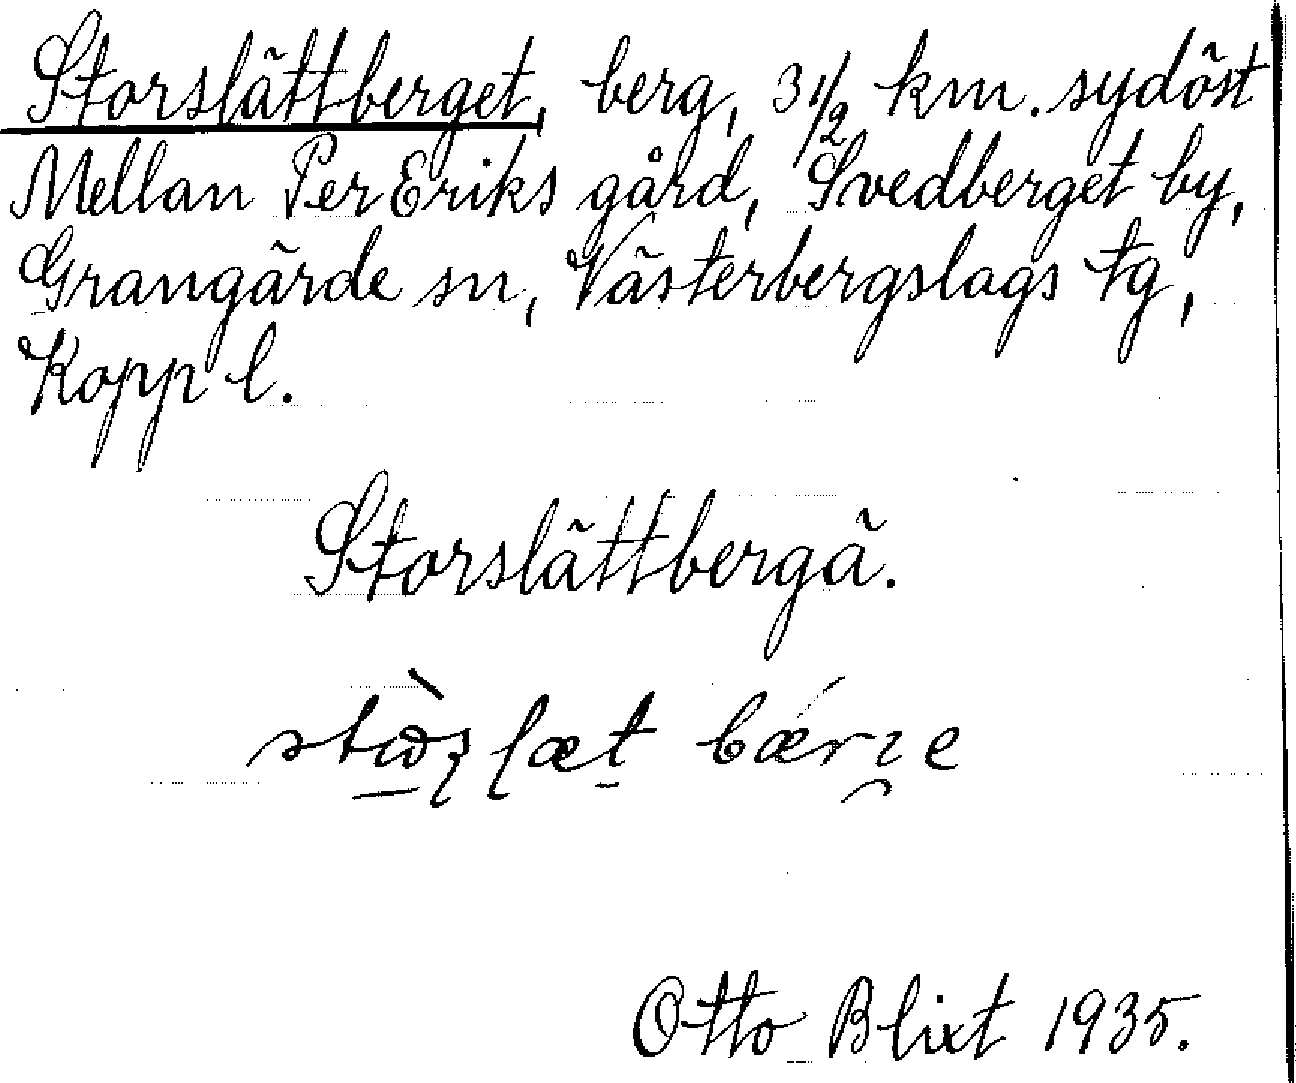 Storslättberget, berg, 3 1/2 km. sydöst
Mellan Per Eriks gård, Svedberget by,
Grangärde sn, Västerbergslags tg,
Kopp l.
Storslättbergä.
Otto Blixt 1935.